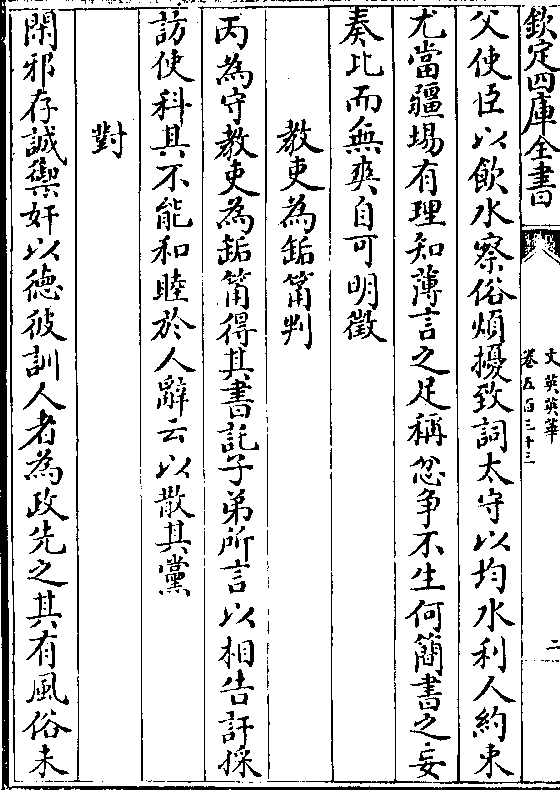 欽定四庫全書
文英英華
卷五百三十三
二
父使臣以飲水察俗煩擾致詞太守以均水利人約束
尤當疆埸有理知薄言之足稱忿争不生何簡書之妄
奏比而無爽自可明徵
教吏為缿筩判
丙為守教吏為缿筩得其書託子弟所言以相告訐採
訪使科其不能和睦於人辭云以散其黨
對
閑邪存誠禦奸以德彼訓人者為政先之其有風俗未